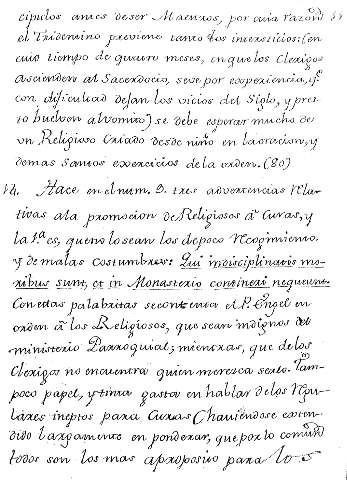 cipulos antes de ser Maestros, por cuia razon
el Tridentino previene tanto los intersticios: (en
cuio tiempo de quatro meses, en que los Clerigos
ascienden al Sacerdocio, se ve por experiencia, q.e
con dificultad dejan los vicios del Siglo, y pres-
to buelven al vomito) se debe esperar mucho de
un Religioso criado desde niño en la oracion, y
demas Santos exercicios de la orden. (80)
14. Hace en el num. 9. tres advertencias rela-
tivas a la promocion de Religiosos a Curas, y
la 1.a es, que no lo sean los de poco recogimiento
y de malas costumbres: Qui indisciplinatis mo-
ribus sunt, et in Monasterio contineri nequeunt.
Con estas palabritas se contenta el P. Engel en
orden a los Religiosos, que sean indignos del
ministerio Parroquial; mientras, que de los
Clerigos no encuentra quien merezca serlo. Tam-
poco papel, y tinta gasta en hablar de los Regu-
lares ineptos para Curas haviendose exten-
dido largamente en ponderar, que por lo comun
todos son los mas aproposito para